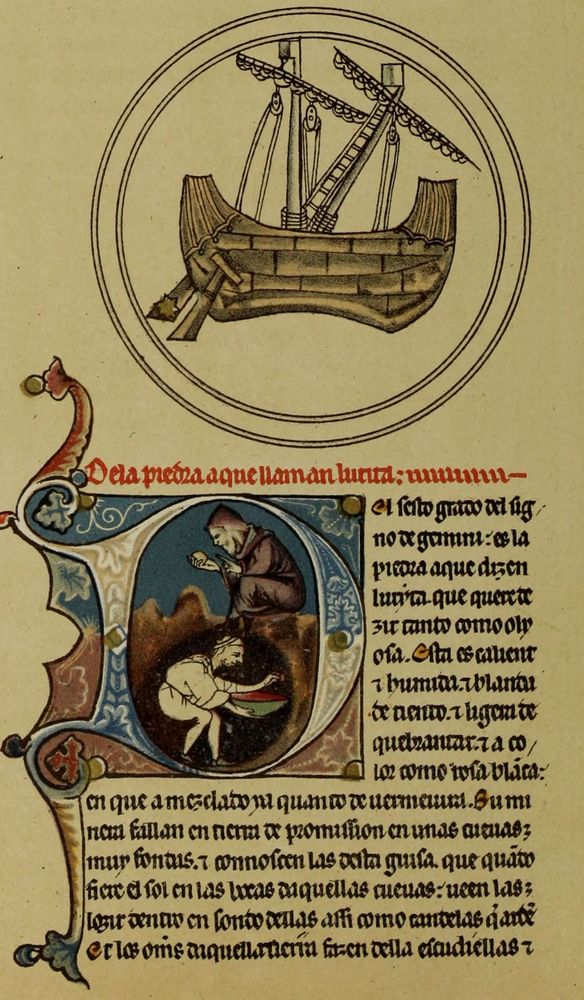 De la piedra a que llaman lurita:
el sesto grado del sig/
no de gemini: es la
piedra a que dizen
luryta. que quere de
zir tanto como oly
osa. Esta es calient
⁊ humida. ⁊ blanda
de tiento. ⁊ ligera de
quebrantar. ⁊ a co/
lor como rosa blāca:
en que a mezclado ya quanto de uermeiura. Su mi
nera fallan en tierra de promission en unas cueuas;
muy fondas. ⁊ connoscen las desta guisa. que quādo
fiere el sol en las bocas daquellas cueuas: ueen las;
lozir dentro en fondo dellas assi como candelas q̄ ardē
Et los om̄s daquella tierra fazen della escudiellas ⁊